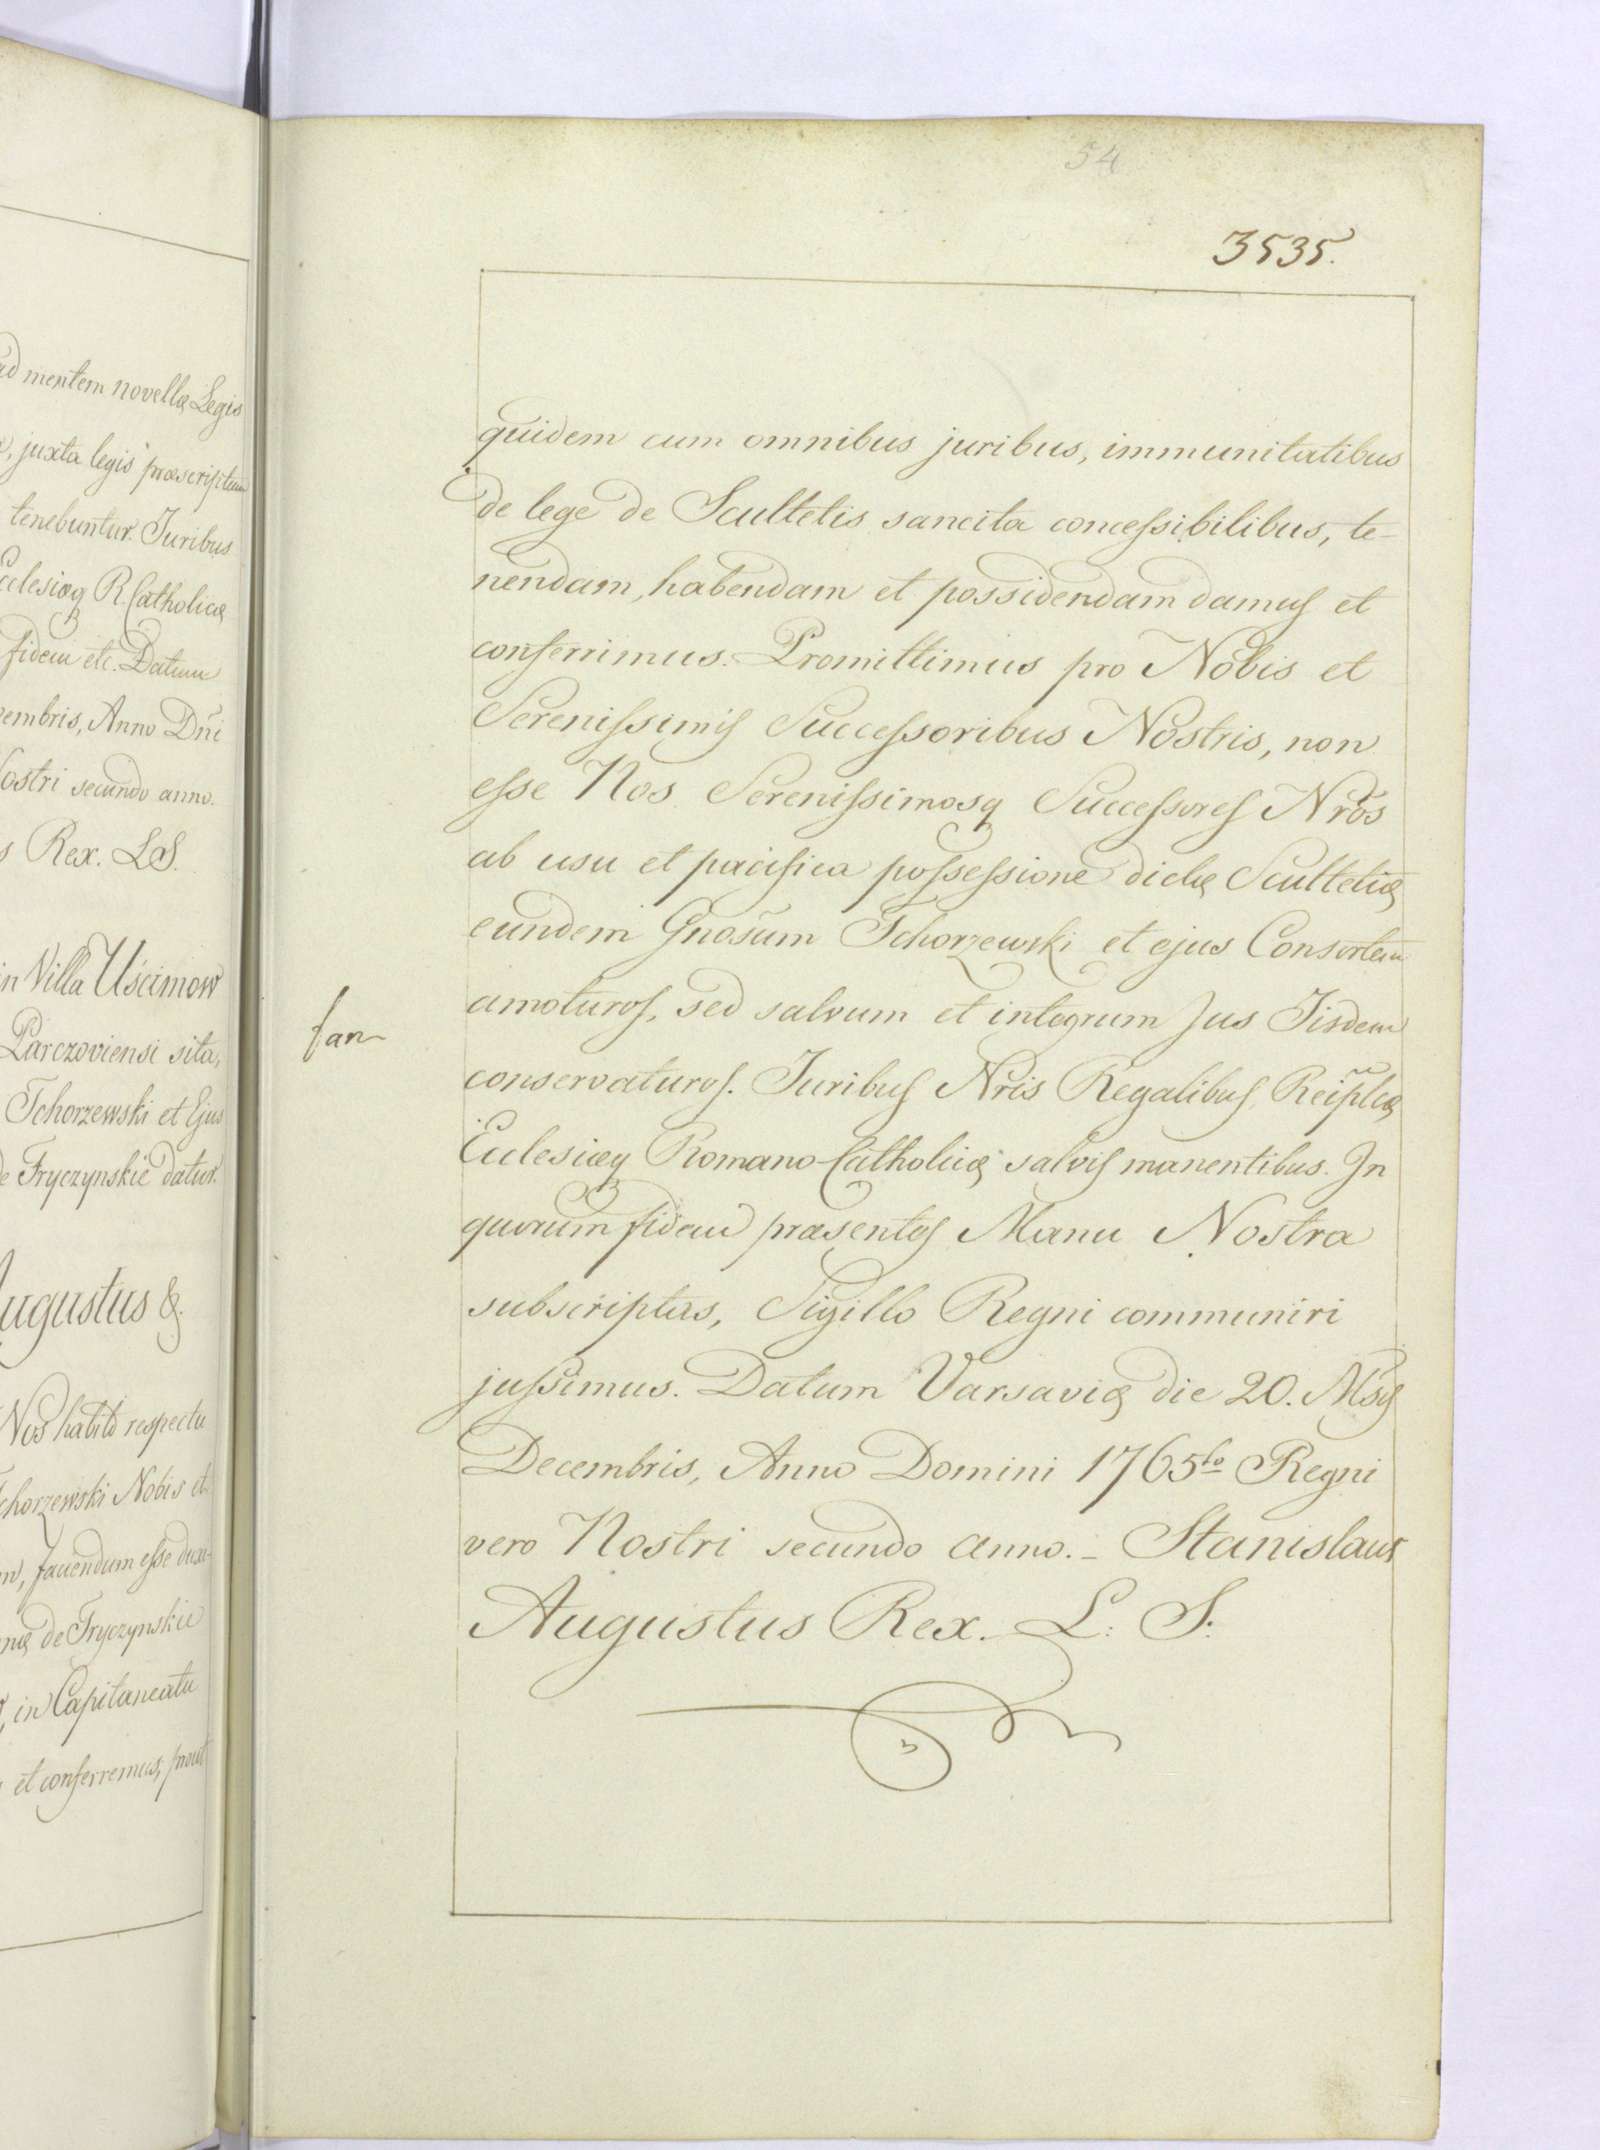 ad mentem novellæ Legis
juxta legis præscriptum
tenebuntur. Juribus
Ecclesiæq R. Catholicæ
fidem etc. Datum
embris, Anno Dñi
ostri secundo anno.
s Rex. LS.
in Villa Uścimow
Parczoviensi sita,
Tchorzewski et Ejus
de Fryczynskie datur.
ugustus &.
Nos habito respectu
chorzewski Nobis et
m, favendum esse duxi-
næ de Fryczynskie
in Capitaneatu
et conferremus, prout
54
3535.
quidem cum omnibus juribus, immunitatibus
de lege de Scultetis sancita concessibilibus, te-
nendam, habendam et possidendam damus et
conferrimus. Promittimus pro Nobis et
Serenissimis Successoribus Nostris, non
esse Nos Serenissimosq Successores Nrõs
ab usu et pacifica possessione dictæ Scultetiæ
eundem Gnosum Tchorzewski et ejus Consortem
amoturos, sed salvum et integrum Jus Iisdem
fan
conservaturos. Juribus Nris Regalibus, Reiplcæ
Ecclesiæq Romano-Catholicæ salvis manentibus. In
quorum fidem præsentes Manu Nostra
subscriptas, Sigillo Regni communiri
jussimus. Datum Varsaviæ die 20. Msis
Decembris, Anno Domini 1765to Regni
vero Nostri secundo anno. - Stanislaus
Augustus Rex. L: S: